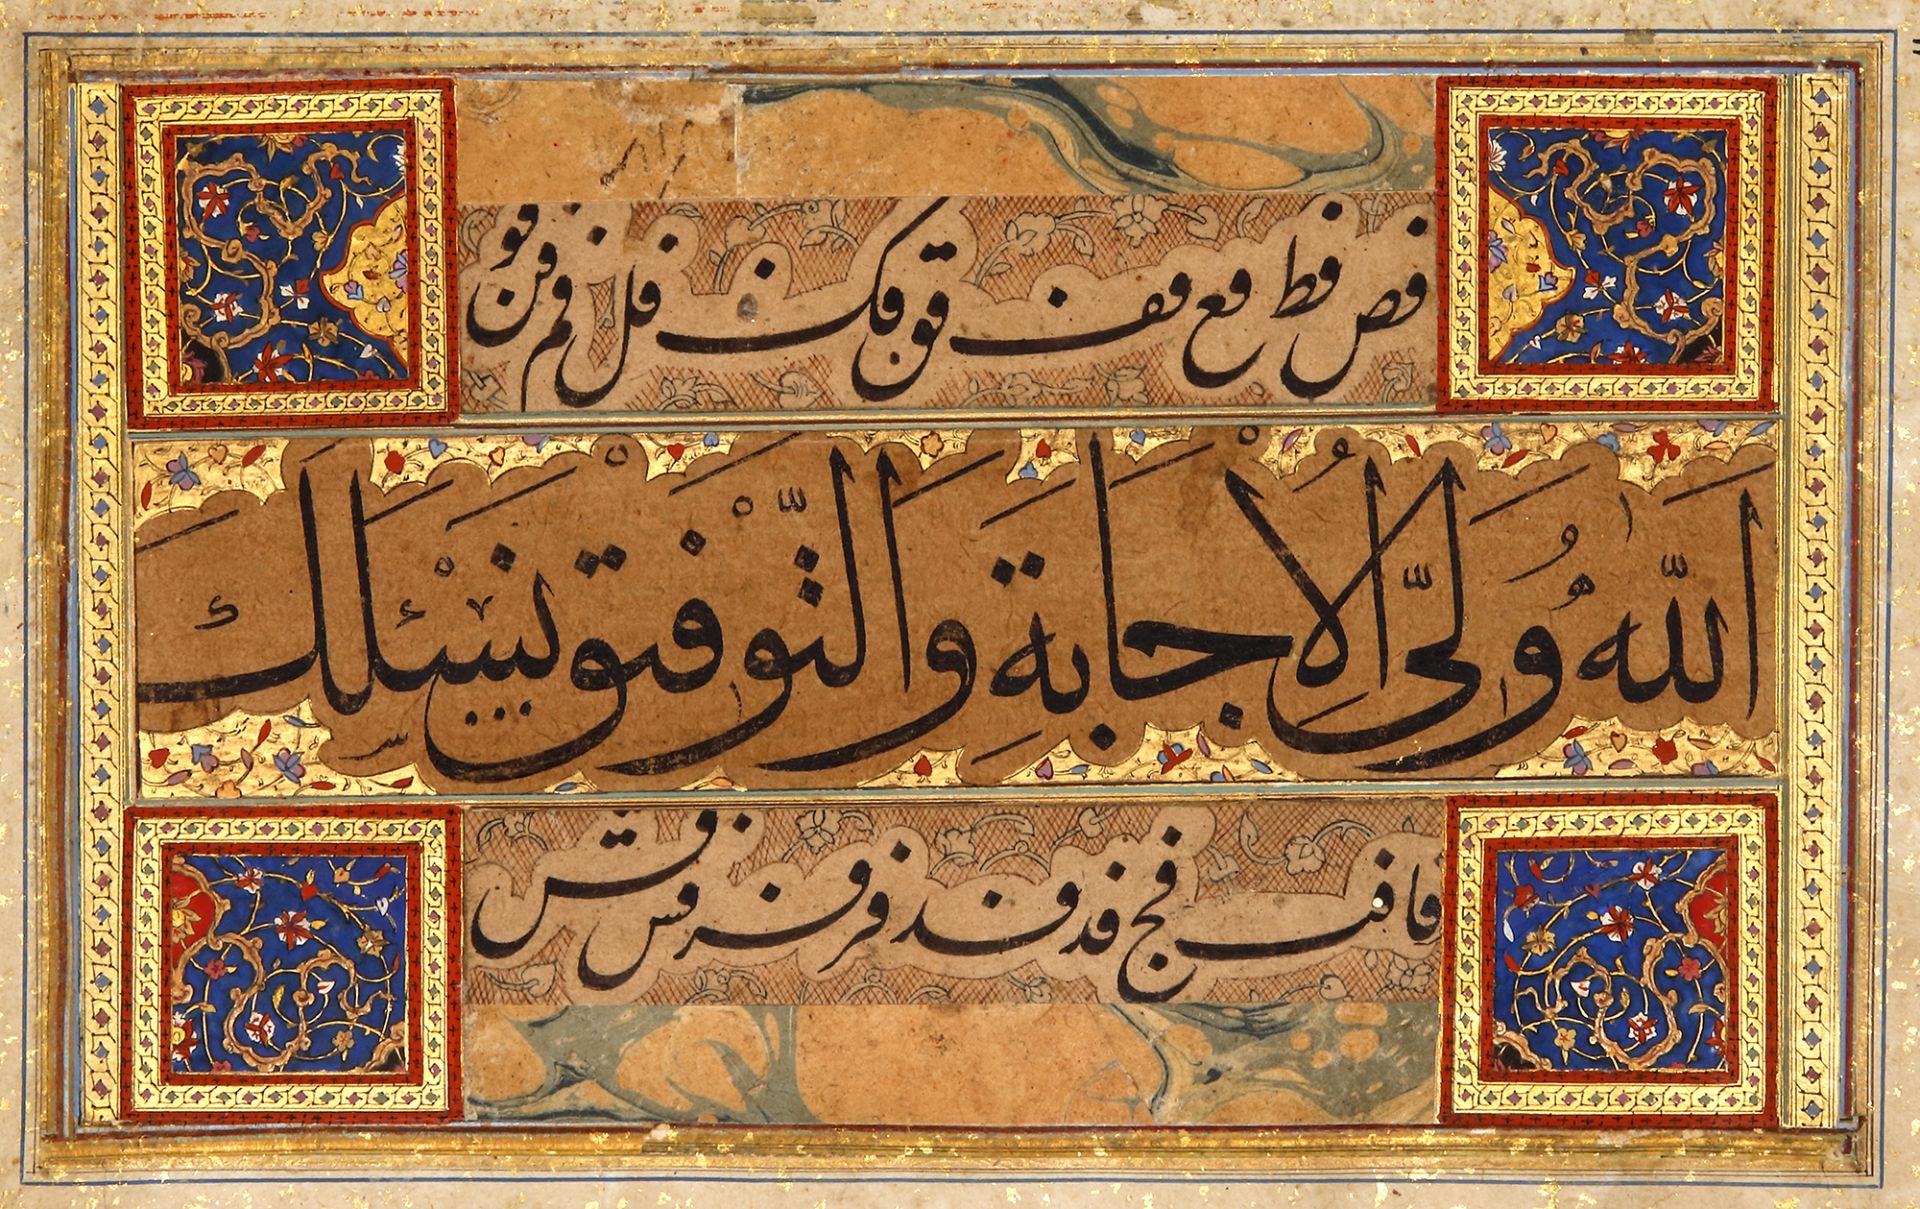 فص فط فع فف فق فك فل فم فن فو
اَللّٰهُ وَلىُّ الْاِجَابَةِ وَالتَّوْفيقِ نَسْئَلُكَ
فا فب فج فد فد فر فر فس فس